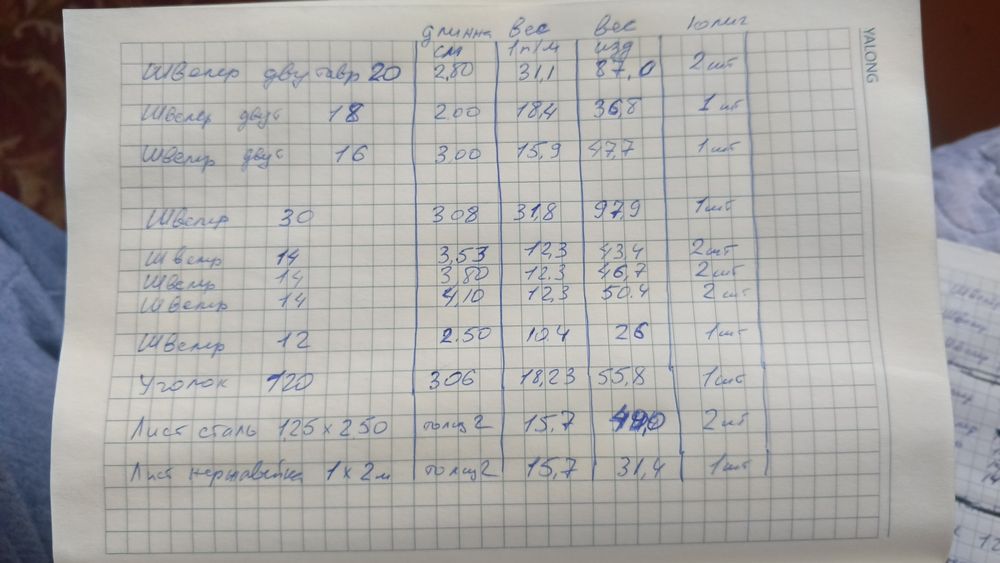 длинна вес вес колич
см 1п/м изд
Швелер двутавр 20 2,80 31,1 87,0 2шт
Швелер двут 18 2.00 18,4 36,8 1шт
Швелер двут 16 3,00 15,9 47,7 1шт
Швелер 30 308 31,8 97,9 1шт
Швелер 14 3,53 12,3 43,4 2шт
Швелер 14 3,80 12.3 46,7 2шт
Швелер 14 4,10 12,3 50.4 2шт
Швелер 12 2.50 10.4 26 1шт
Уголок 120 306 18,23 55,8 1шт
Лист сталь 1,25 х 2.50 толщ 2 15,7 2шт
Лист нержавейка 1 х 2м толщ 2 15,7 31,4 1шт
YALONG